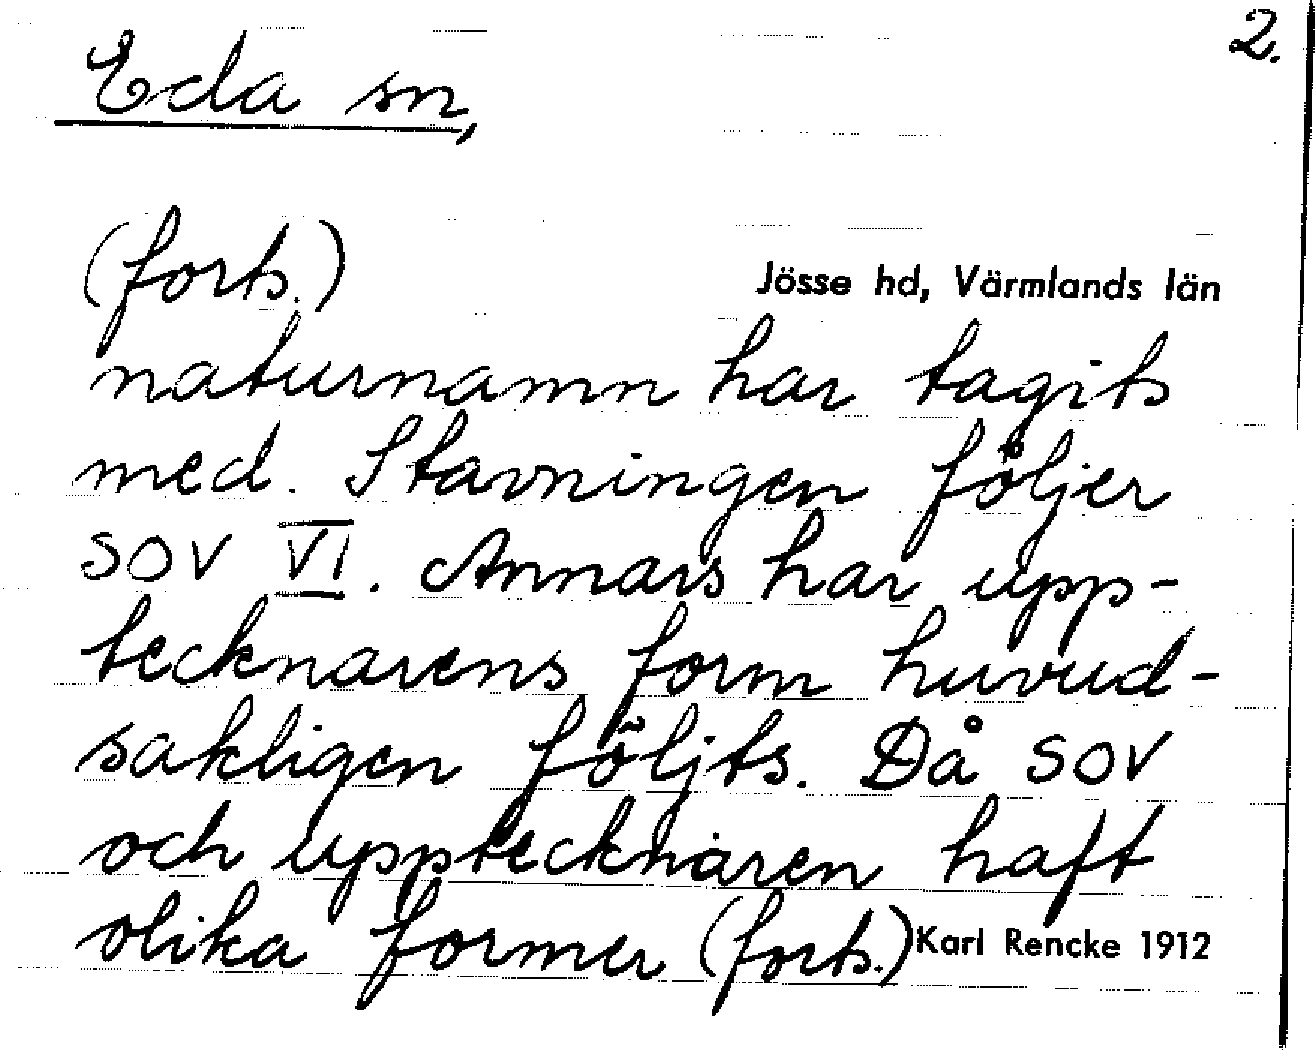 2.
Eda sn,
(forts.)
Jösse hd, Värmlands län
naturnamn har tagits
med. Stavningen följer
SOV VI. Annars har upp-
tecknarens form huvud-
sakligen följts. Då SOV
och upptecknaren haft
olika former (forts.) Karl Rencke 1912